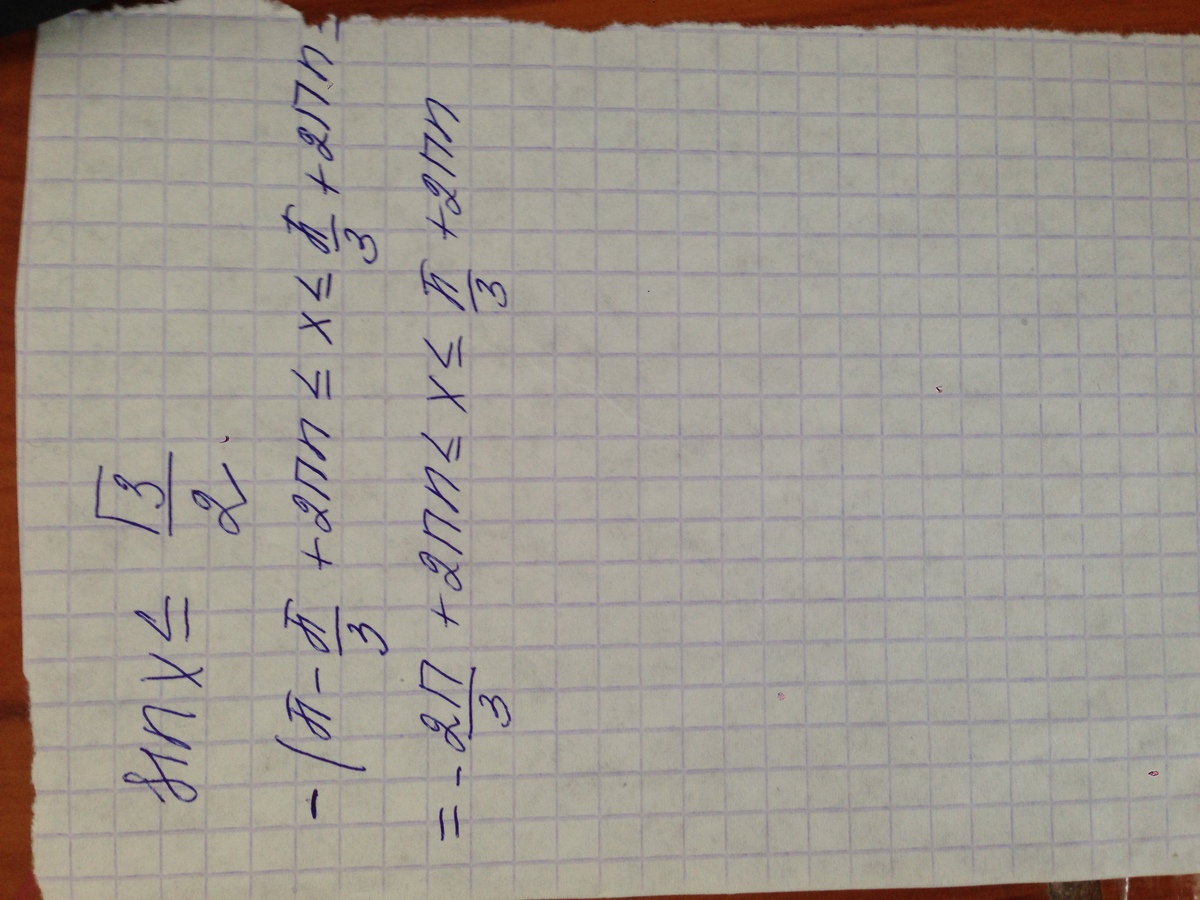 sin x ≤ √3/2
-(π - π/3 + 2πn ≤ x ≤ π/3 + 2πn =
= -2π/3 + 2πn ≤ x ≤ π/3 + 2πn